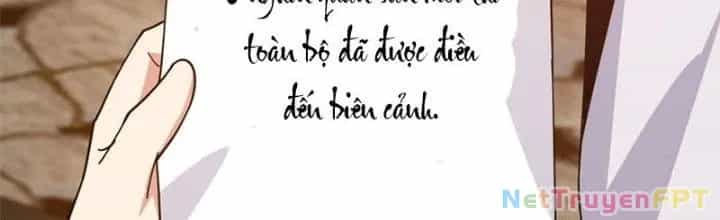 toàn bộ đã được điều
đến biên cảnh.
NetTruyenFPT